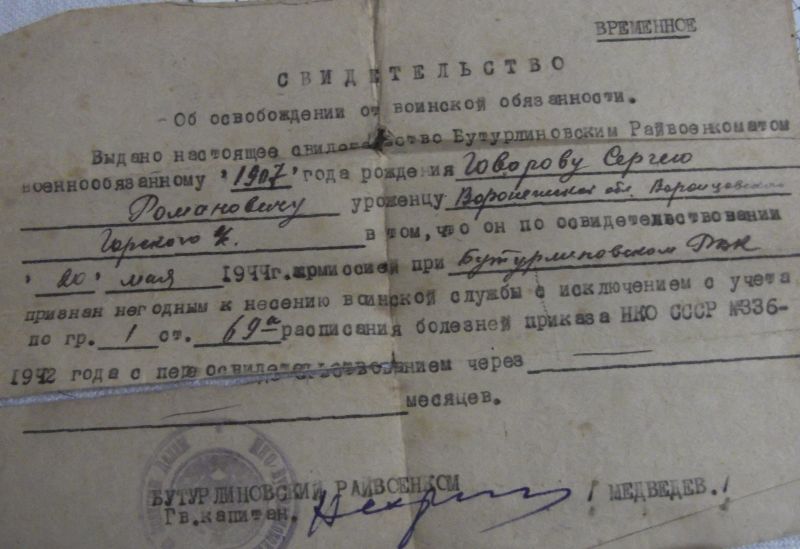 ВРЕМЕННОЕ
СВИДЕТЕЛЬСТВО
Об освобождении от воинской обязанности.
Выдано настоящее свидетельство Бутурлиновским Райвоенкоматом
военнообязанному "1907" года рождения Говорову Сергею
Романовичу уроженцу Воронежская обл. Воронцовского
Горского с/с. в том, что он по освидетельствовании
"20" мая 1944г. комиссией при Бутурлиновском РВК
признан негодным к несению воинской службы с исключением с учета
по гр. 1 ст. 69а расписания болезней приказа НКО СССР №336-
1942 года с пере освидетельствованием через
месяцев.
БУТУРЛИНОВСКИЙ РАЙВОЕНКОМ
Гв.капитан. /МЕДВЕДЕВ./